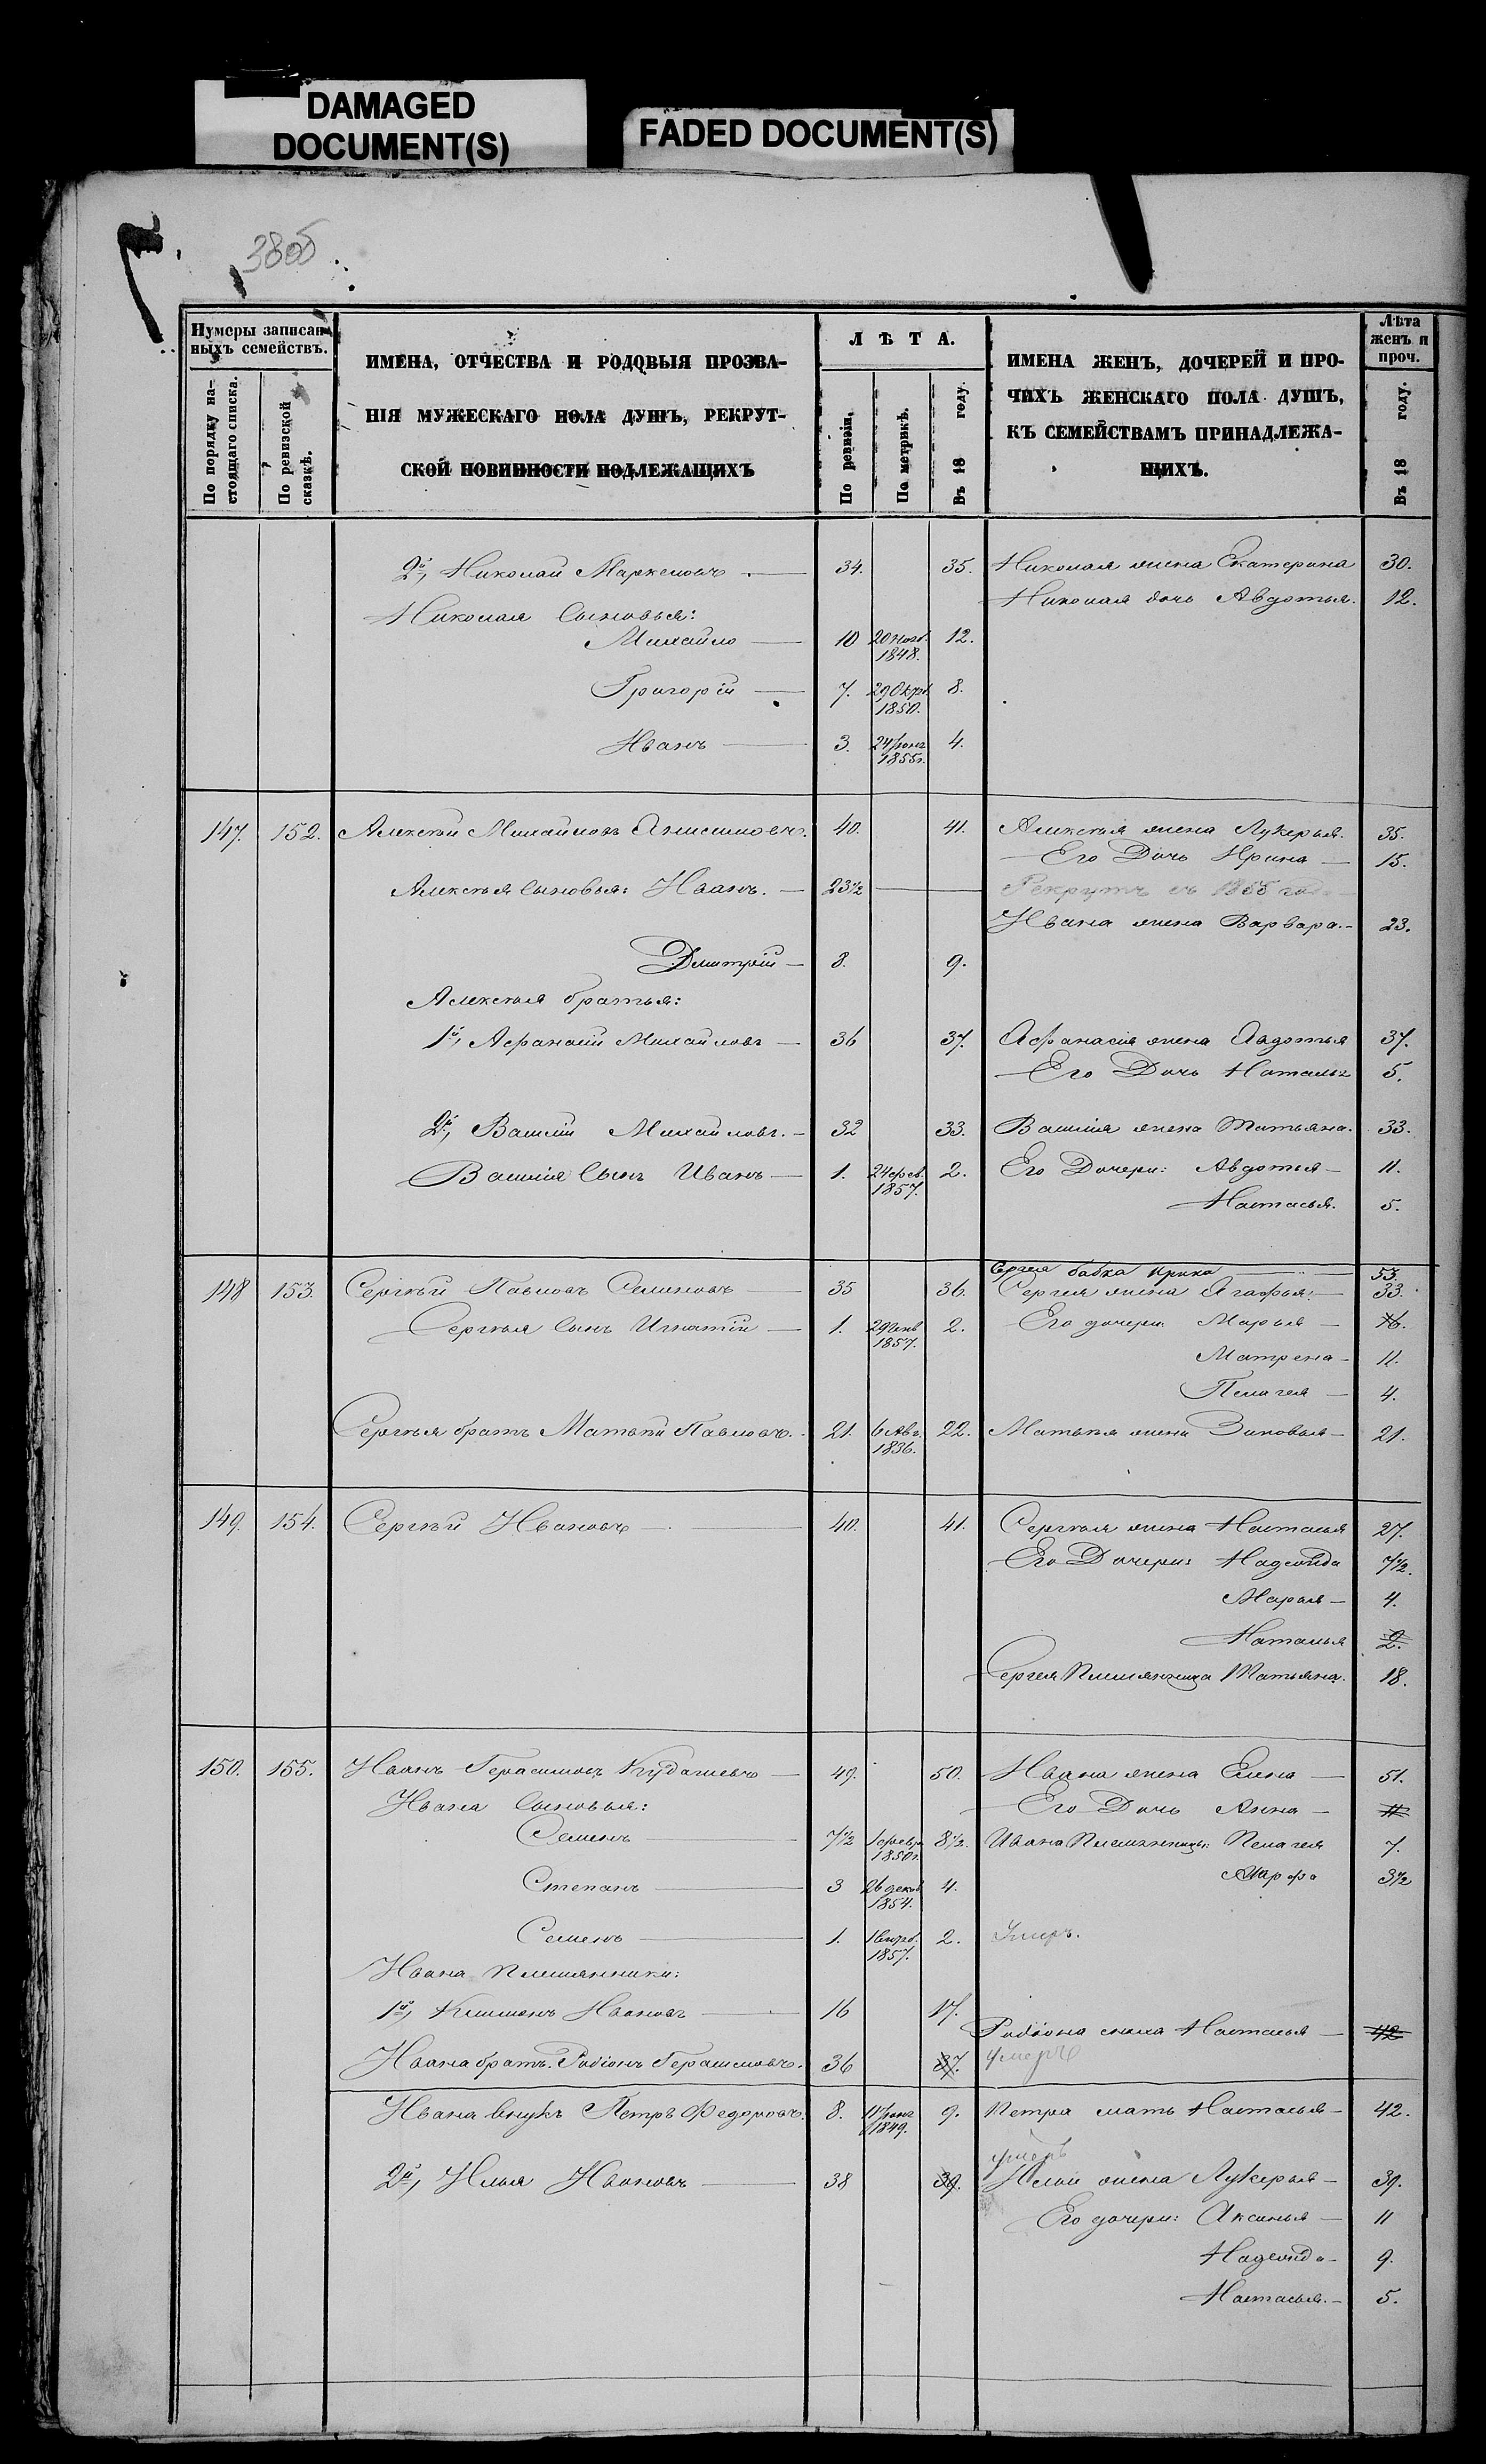 DAMAGED
DOCUMENT(S)
FADED DOCUMENT(S)
38об
Нумеры записан-
ныхъ семействъ.
По порядку на-
стоящаго списка.
По ревизской
сказкѣ.
ИМЕНА, ОТЧЕСТВА И РОДОВЫЯ ПРОЗВА-
НІЯ МУЖЕСКАГО ПОЛА ДУШЪ, РЕКРУТ-
СКОЙ ПОВИННОСТИ ПОДЛЕЖАЩИХЪ
ЛѢТА.
По ревизіи.
По метрикѣ.
Въ 18 году.
ИМЕНА ЖЕНЪ, ДОЧЕРЕЙ И ПРО-
ЧИХЪ ЖЕНСКАГО ПОЛА ДУШЪ,
КЪ СЕМЕЙСТВАМЪ ПРИНАДЛЕЖА-
ЩИХЪ.
Лѣта
женъ и
проч.
Въ 18 году.
2й, Николай Маркеловъ — 34. 35. Николая жена Екатерина 30.
Николая дочь Авдотья. 12.
Николая Сыновья:
Михайло — 10 20 Нояб. 1848. 12.
Григорій — 7. 29 Октб. 1850. 8.
Иванъ — 3. 24 Іюня 1855г. 4.
147. 152. Алексѣй Михайловъ Анисимовъ. 40. 41. Алексѣя жена Лукерья. 35.
Его Дочь Ирина — 15.
Алексѣя Сыновья: Иванъ. — 23½ — Рекрутъ съ 1855 года
Ивана жена Варвара. — 23.
Дмитрій — 8. 9.
Алексѣя братья:
1й, Афанасій Михайловъ — 36 37. Афанасія жена Авдотья 37.
Его Дочь Наталья 5.
2й, Василій Михайловъ. — 32 33. Василія жена Татьяна. 33.
Василія Сынъ Иванъ — 1. 24 фев. 1857. 2. Его Дочери: Авдотья — 11.
Настасья. 5.
Сергея бабка Ирина — 53.
148 153. Сергѣй Павловъ Семеновъ — 35 36. Сергея жена Агафья. — 33.
Сергѣя Сынъ Игнатій — 1. 29 Генв 1857. 2. Его дочери: Марья — 16.
Матрена — 11.
Пелагея — 4.
Сергѣя братъ Матвѣй Павловъ. — 21. 6 Авг. 1836. 22. Матвѣя жена Зиновья — 21.
149. 154. Сергѣй Ивановъ — 40. 41. Сергѣя жена Настасья 27.
Его Дочери: Надежда 7½.
Марья — 4.
Наталья 2.
Сергея Племянница Татьяна. 18.
150. 155. Иванъ Герасимовъ Кудашевъ — 49. 50. Ивана жена Елена — 51.
Ивана Сыновья: Его Дочь Анна — 11
Семенъ — 7½ 1 февр. 1850г. 8½. Ивана Племянницы: Пелагея 7.
Степанъ — 3 26 декаб 1854. 4. Марфа 3½
Семенъ — 1. 1857. 2. Умеръ.
Ивана Племянники:
1й, Климонъ Ивановъ — 16 17.
Родіона жена Настасья — 42
Ивана братъ Родіонъ Герасимовъ. 36 37. умеръ
Ивана внукъ Петръ Федоровъ. 8. 11 Іюня 1849. 9. Петра мать Настасья — 42.
умеръ
2й, Илья Ивановъ — 38 39. Ильи жена Лукерья — 39.
Его дочери: Аксинья — 11
Надежда — 9.
Настасья. — 5.